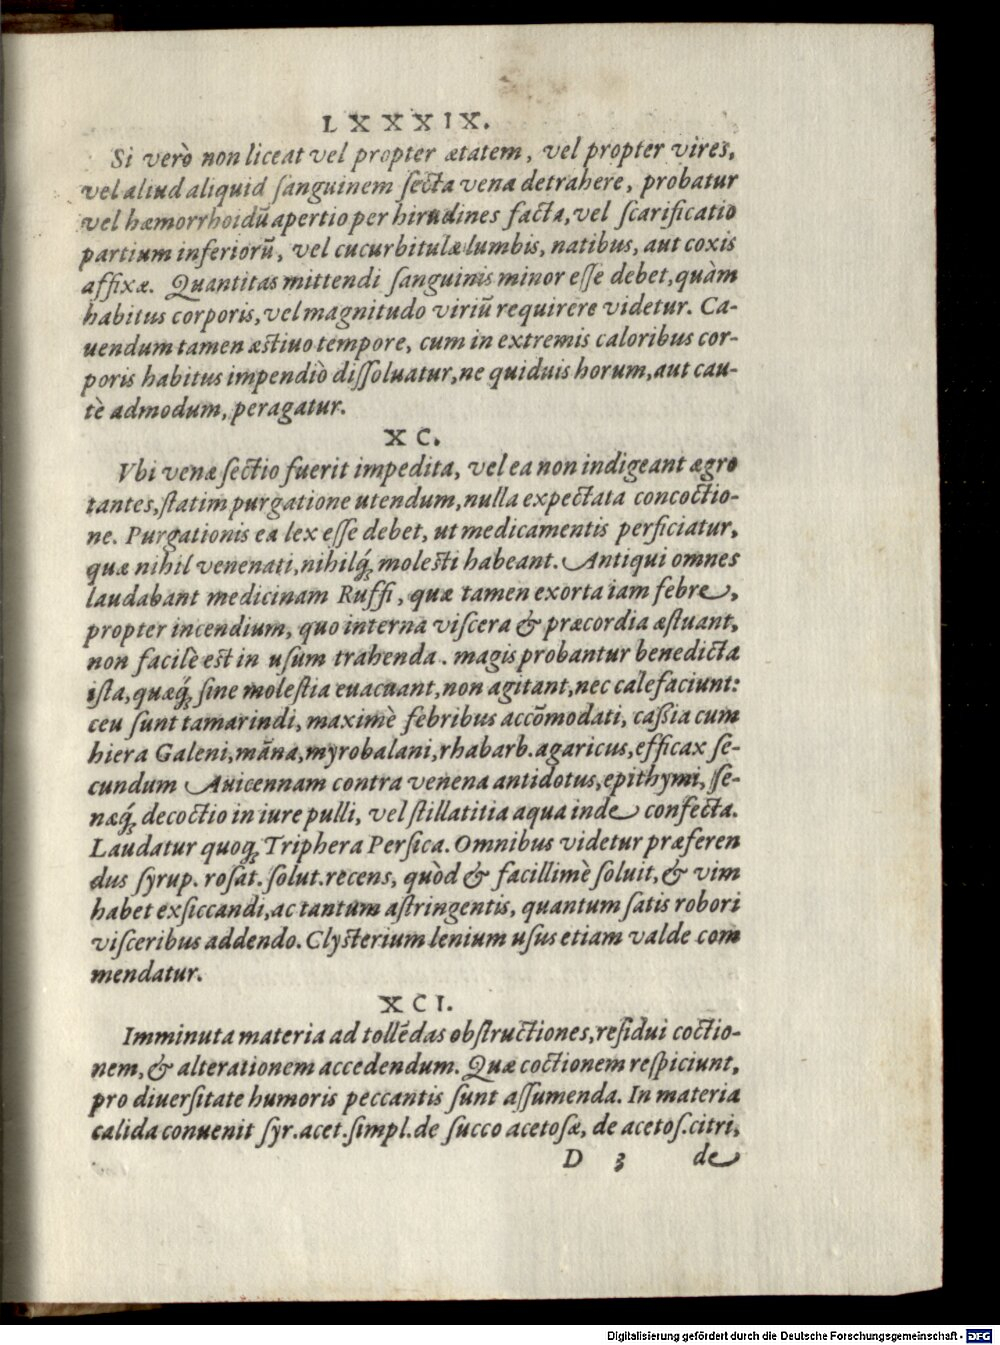 LXXXIX.
Si verò non liceat vel propter ætatem, vel propter vires,
vel aliud aliquid sanguinem secta vena detrahere, probatur
vel hæmorrhoidū apertio per hirudines facta, vel scarificatio
partium inferiorū, vel cucurbitulæ lumbis, natibus, aut coxis
affixæ. Quantitas mittendi sanguinis minor esse debet, quàm
habitus corporis, vel magnitudo viriū requirere videtur. Ca-
uendum tamen æstiuo tempore, cum in extremis caloribus cor-
poris habitus impendiò dissoluatur, ne quiduis horum, aut cau-
tè admodum, peragatur.
XC.
Vbi venæ sectio fuerit impedita, vel ea non indigeant ægro
tantes, statim purgatione utendum, nulla expectata concoctio-
ne. Purgationis ea lex esse debet, ut medicamentis perficiatur,
quæ nihil venenati, nihilq́ꝫ molesti habeant. Antiqui omnes
laudabant medicinam Ruffi, quæ tamen exorta iam febre,
propter incendium, quo interna viscera & præcordia æstuant,
non facilè est in usum trahenda. magis probantur benedicta
ista, quæq́ꝫ sine molestia euacuant, non agitant, nec calefaciunt:
ceu sunt tamarindi, maximè febribus accōmodati, cassia cum
hiera Galeni, māna, myrobalani, rhabarb. agaricus, efficax se-
cundum Auicennam contra venena antidotus, epithymi, se-
næq́ꝫ decoctio in iure pulli, vel stillatitia aqua inde confecta.
Laudatur quoqꝫ Triphera Persica. Omnibus videtur præferen
dus syrup. rosat. solut. recens, quòd & facillimè soluit, & vim
habet exsiccandi, ac tantum astringentis, quantum satis robori
visceribus addendo. Clysterium lenium usus etiam valde com
mendatur.
XCI.
Imminuta materia ad tollēdas obstructiones, residui coctio-
nem, & alterationem accedendum. Quæ coctionem respiciunt,
pro diuersitate humoris peccantis sunt assumenda. In materia
calida conuenit syr. acet. simpl. de succo acetosæ, de acetos. citri,
D 3 de
Digitalisierung gefördert durch die Deutsche Forschungsgemeinschaft - DFG